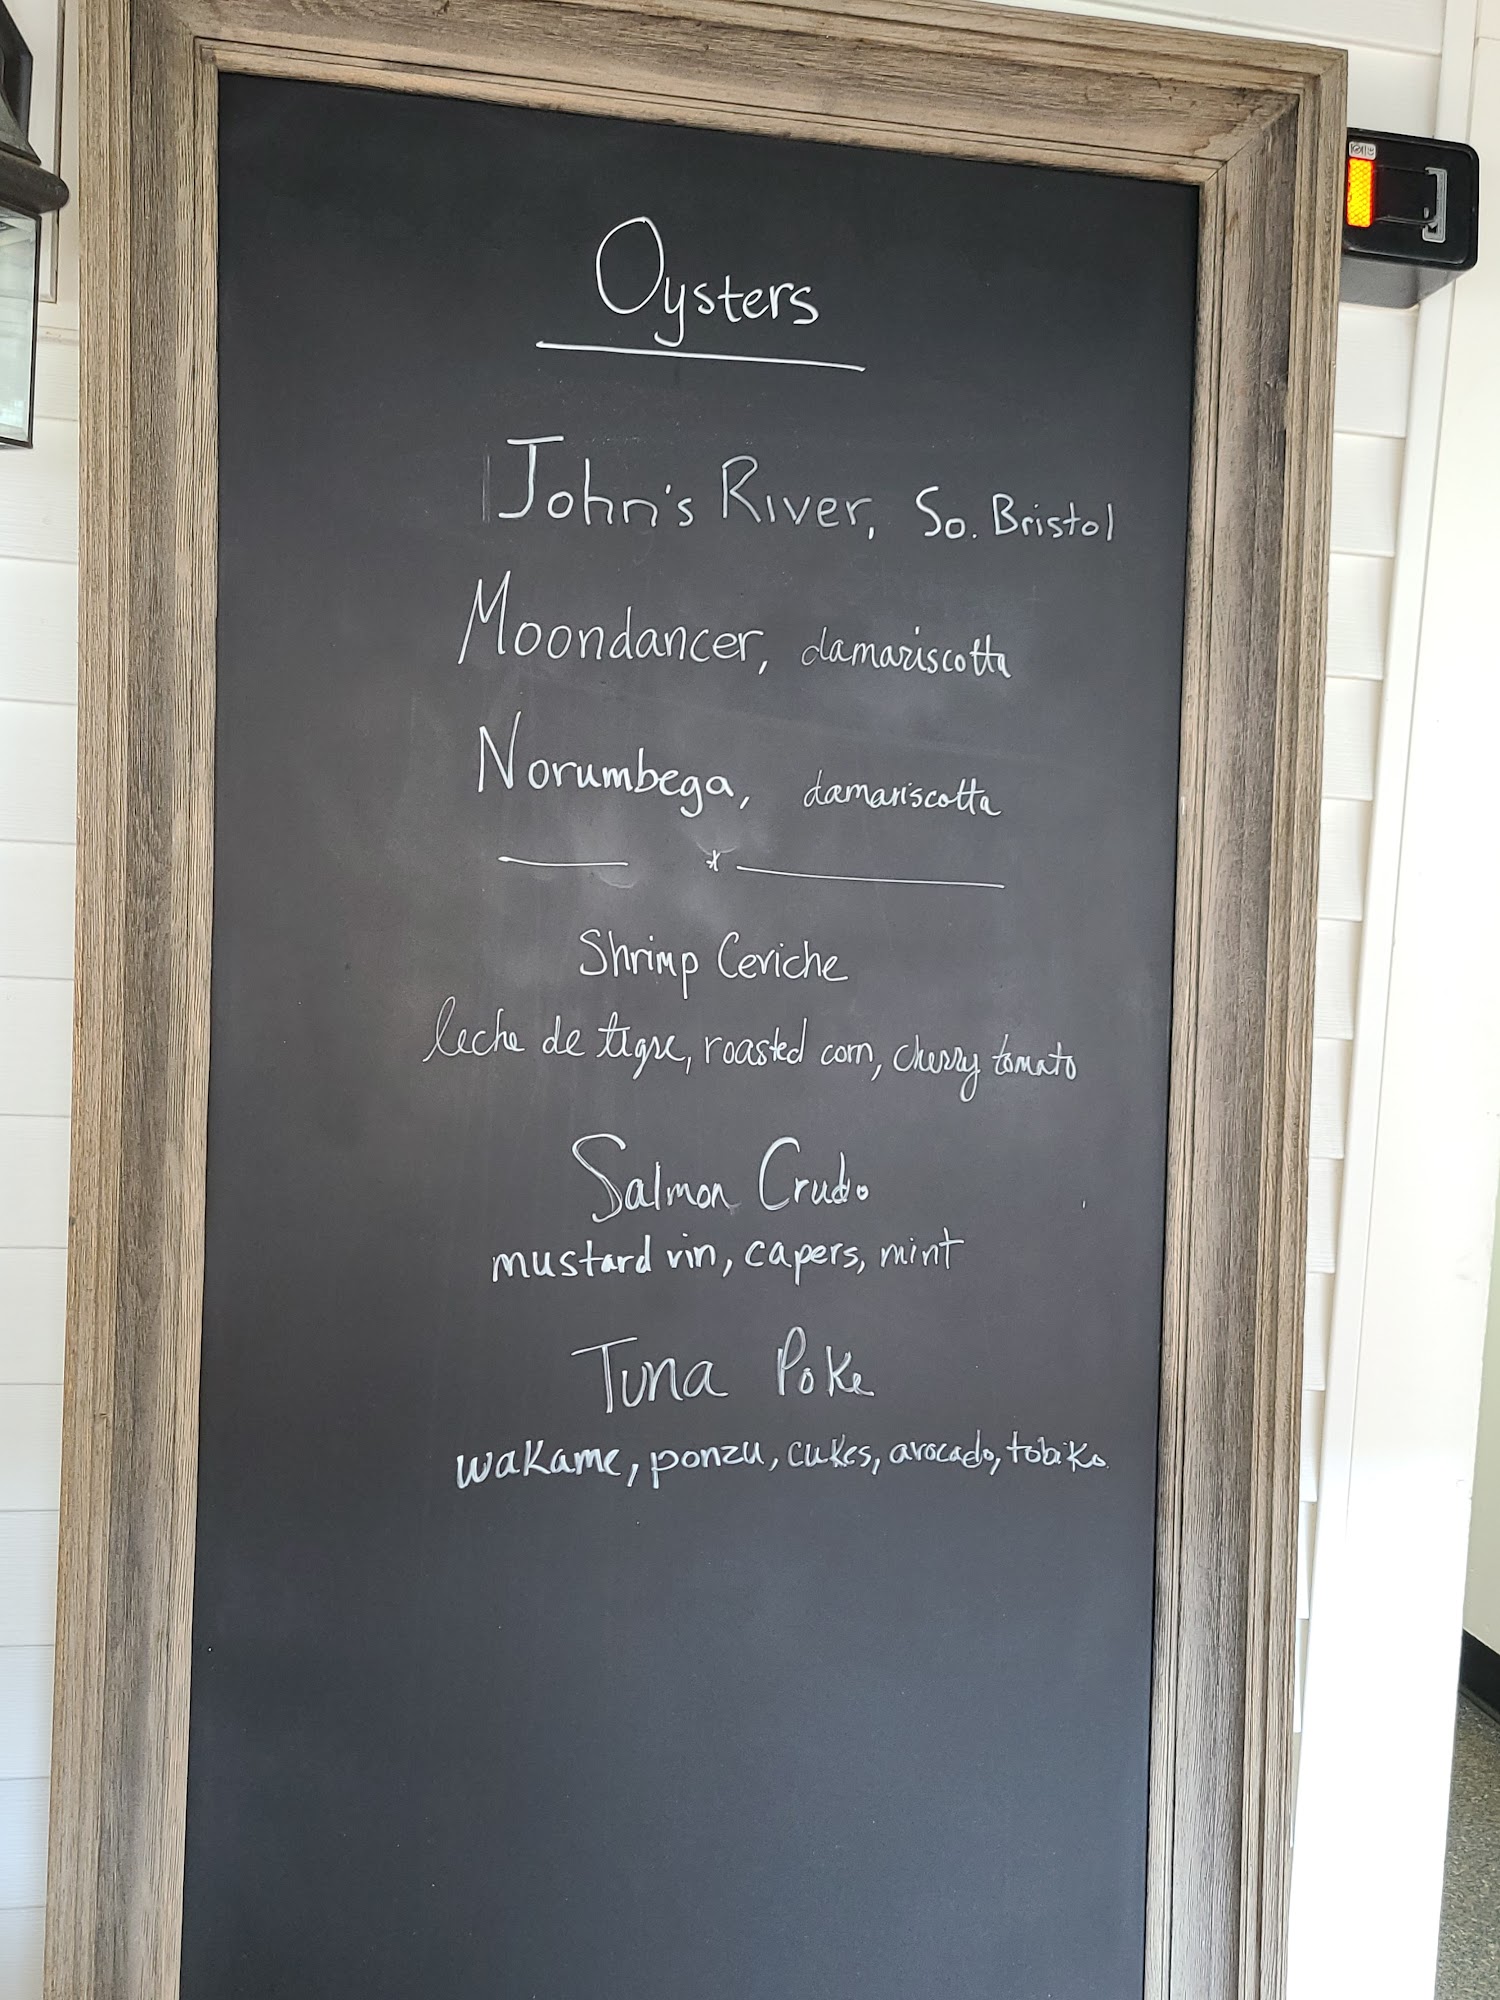 Oysters
John's River, So. Bristol
Moondancer, damariscotta
Norumbega, damariscotta
*
Shrimp Ceviche
leche de tigre, roasted corn, cherry tomato
Salmon Crudo
mustard vin, capers, mint
Tuna Poke
wakame, ponzu, cukes, avocado, tobiko